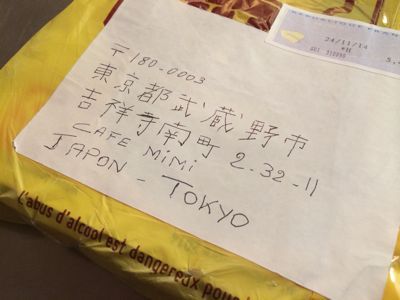 RÉPUBLIQUE FRAN
24/11/14
〒180-0003
東京都武蔵野市
吉祥寺南町 2-32-11
CAFE MiMi
JAPON - TOKYO
L'abus d'alcool est dangereux pour